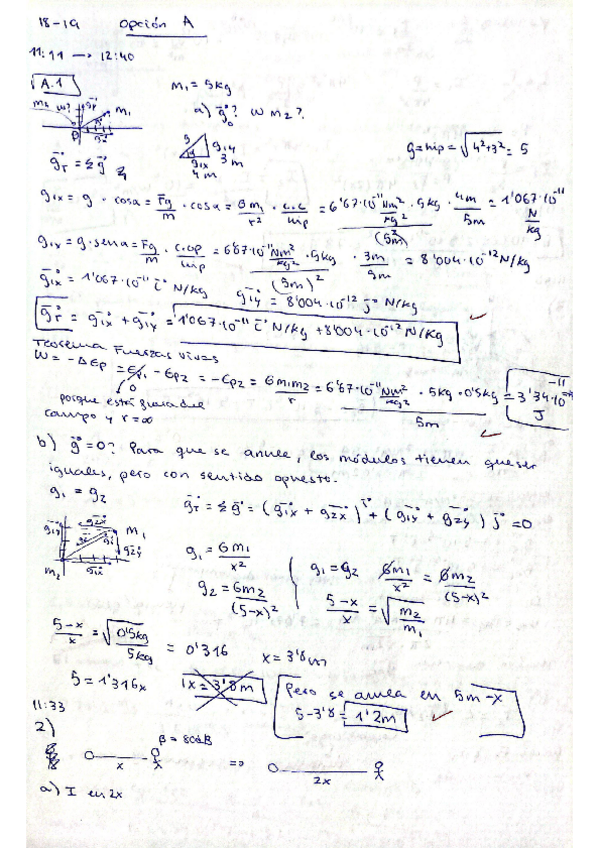 18-19 Opción A
11:11 → 12:40
A.1 m₁ = 5kg
a) g⃗₀? W m₂?
m₂ m₁
g = hip = √4²+3² = 5
5 3 m 4 m
g⃗T = Σg⃗
g₁ₓ = g · cosα = Fg/m · cosα = G m₁/r² · c.c/hip = 6'67·10⁻¹¹ Nm²/kg² · 5kg/(5m)² · 4m/5m = 1'067·10⁻¹¹ N/kg
g₁ₓ = g · senα = Fg/m · c.op/hip = 6'67·10⁻¹¹ Nm²/kg² · 5kg/(5m)² · 3m/5m = 8'004·10⁻¹² N/kg
g⃗₁ₓ = 1'067·10⁻¹¹ i⃗ N/kg g⃗₁y = 8'004·10⁻¹² j⃗ N/kg
g⃗T = g⃗₁ₓ + g⃗₁y = 1'067·10⁻¹¹ i⃗ N/kg + 8'004·10⁻¹² N/kg
Teorema Fuerzas Vivas
W = -ΔEp = Ep₁ - Ep₂ = -Ep₂ = G m₁m₂/r = 6'67·10⁻¹¹ Nm²/kg² · 5kg · 0'5kg/5m = 3'34·10⁻¹¹ J
0
porque está fuera del
campo y r = ∞
b) g⃗ = 0? Para que se anule, los módulos tienen que ser
iguales, pero con sentido opuesto.
g₁ = g₂ g⃗T = Σg⃗ = (g⃗₁ₓ + g⃗₂ₓ) i⃗ + (g⃗₁y + g⃗₂y) j⃗ = 0
m₁ m₂
g₁ = Gm₁/x² g₁ = g₂ Gm₁/x² = Gm₂/(5-x)²
g₂ = Gm₂/(5-x)² 5-x/x = √m₂/m₁
5-x/x = √0'5kg/5kg = 0'316 x = 3'8m
5 = 1'316x x = 3'8m
Pero se anula en 5m - x
5 - 3'8 = 1'2m
11:33
2) β = 80dB
x ⇒ 2x
a) I en 2x